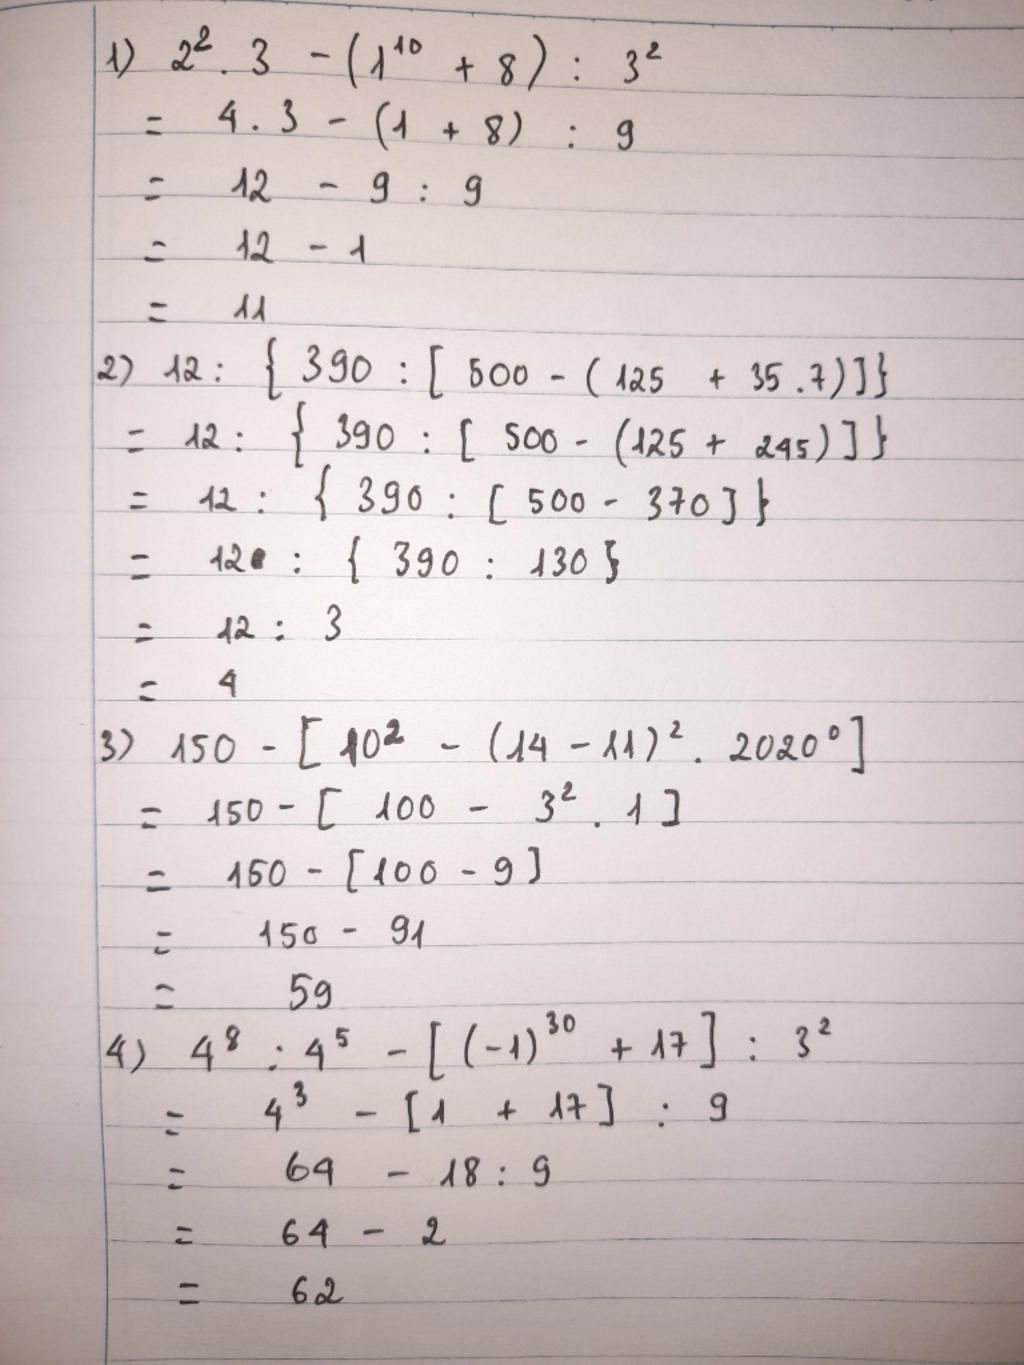 1) 2² . 3 - (1¹⁰ + 8) : 3²
= 4 . 3 - (1 + 8) : 9
= 12 - 9 : 9
= 12 - 1
= 11
2) 12 : { 390 : [ 500 - (125 + 35 . 7)]}
= 12 : { 390 : [ 500 - (125 + 245)]}
= 12 : { 390 : [ 500 - 370]}
= 12 : { 390 : 130}
= 12 : 3
= 4
3) 150 - [ 10² - (14 - 11)² . 2020⁰]
= 150 - [ 100 - 3² . 1]
= 150 - [100 - 9]
= 150 - 91
= 59
4) 4⁸ : 4⁵ - [(-1)³⁰ + 17] : 3²
= 4³ - [1 + 17] : 9
= 64 - 18 : 9
= 64 - 2
= 62